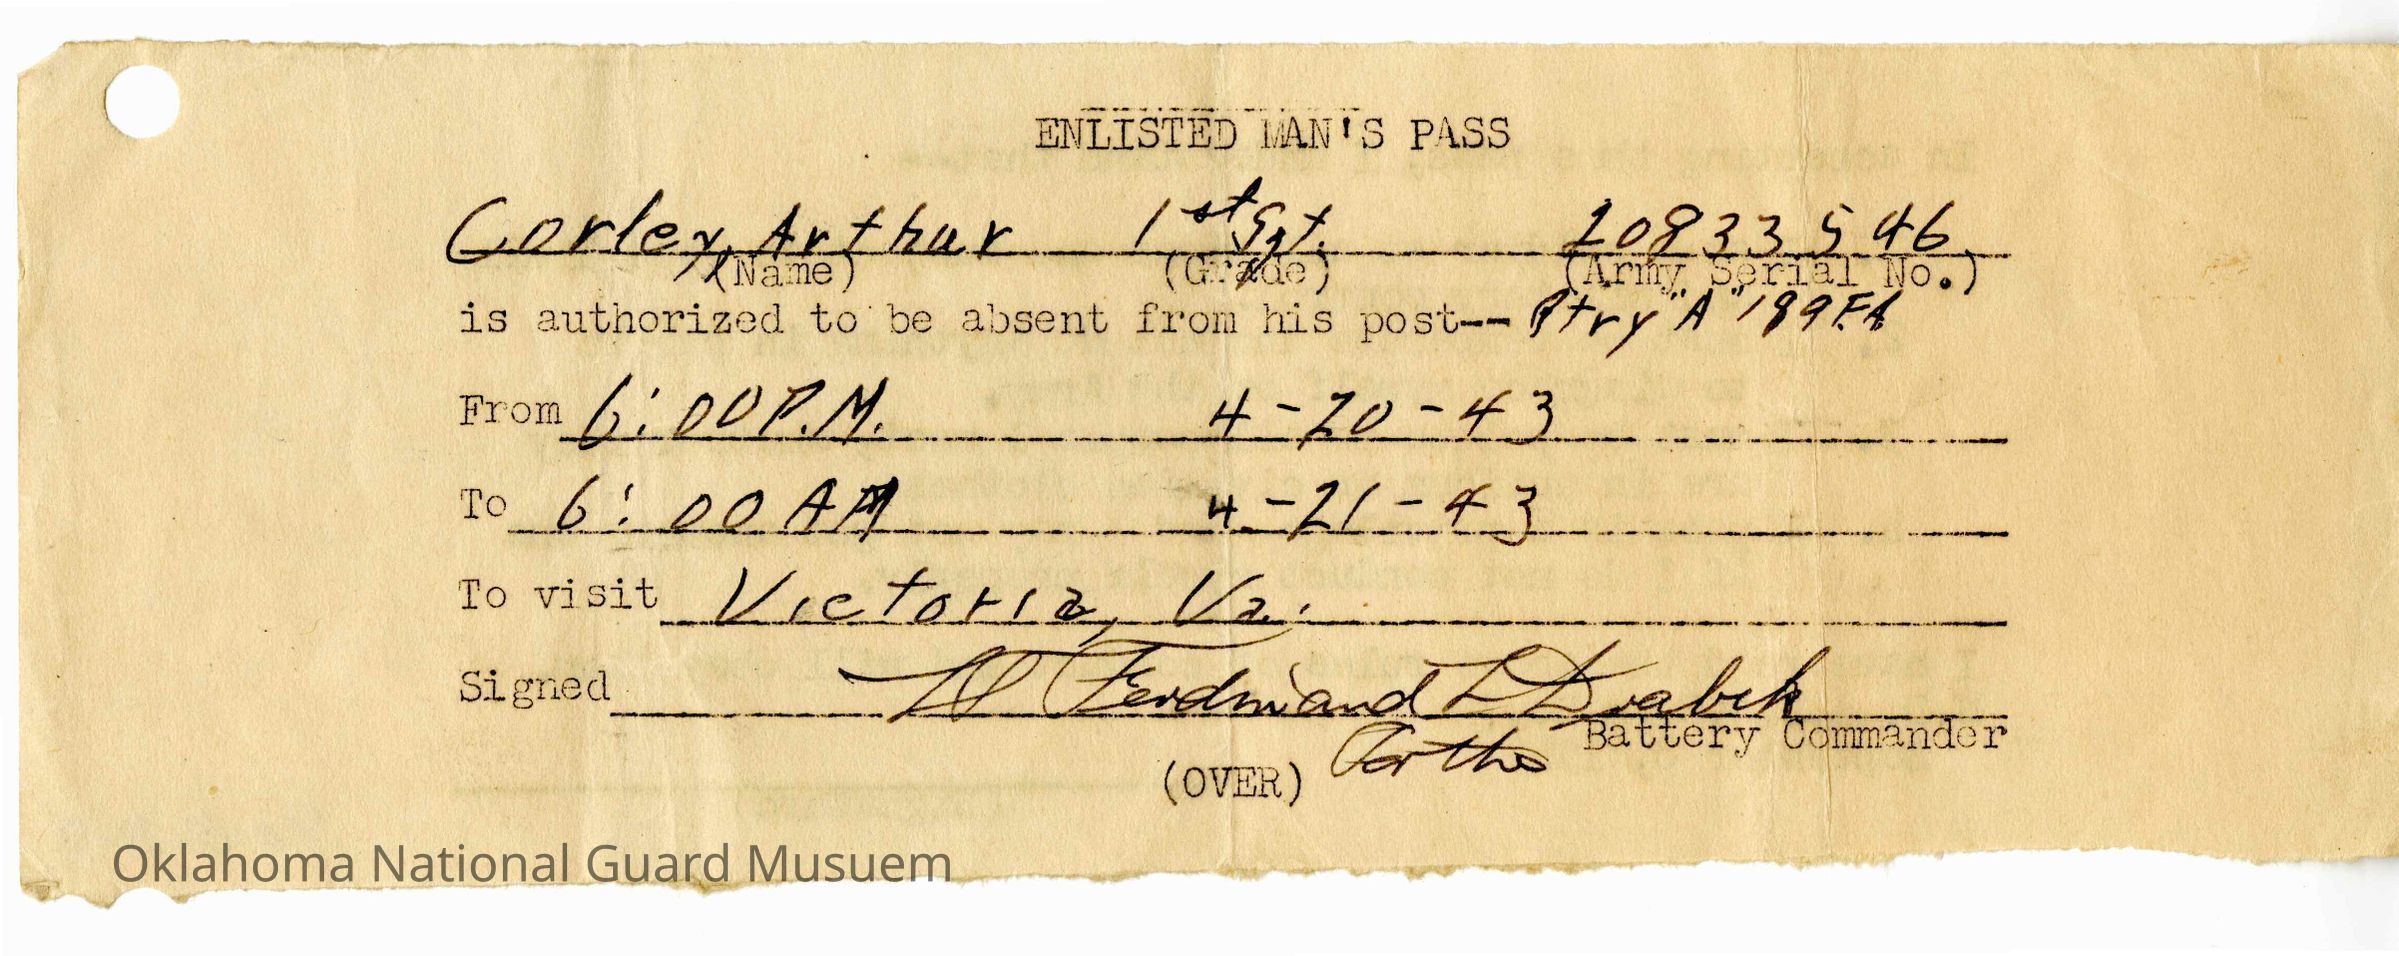 ENLISTED MAN'S PASS
Corley, Arthur 1st Sgt. 20833546
(Name) (Grade) (Army Serial No.)
is authorized to be absent from his post-- Btry "A" 189 F.A.
From 6:00 P.M. 4-20-43
To 6:00 AM 4-21-43
To visit Victoria, Va.
Signed Lt Ferdinand L Drabek
For the Battery Commander
(OVER)
Oklahoma National Guard Musuem